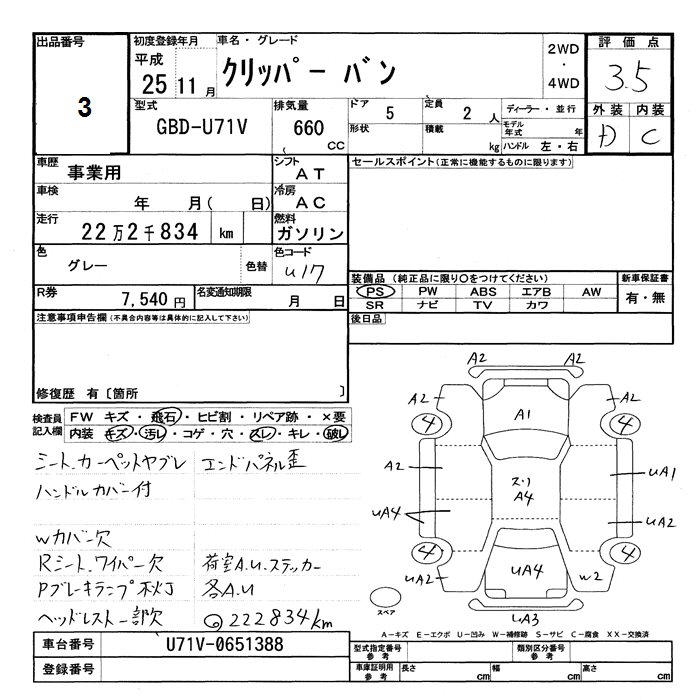 出品番号
3
初度登録年月
平成
25 11 月
車名・グレード
クリッパー バン
2WD
・
4WD
評価点
3.5
型式
GBD-U71V
排気量
660
CC
ドア
5
定員
2 人
ディーラー・並行
形状
積載
kg
モデル年式
年
ハンドル 左・右
外装 内装
D C
車歴
事業用
シフト
AT
セールスポイント(正常に機能するものに限ります)
車検
年 月( 日)
冷房
AC
走行
22万2千834 km
燃料
ガソリン
色
グレー
色替
色コード
U17
装備品(純正品に限り○をつけてください)
PS PW ABS エアB AW
SR ナビ TV カワ
新車保証書
有・無
R券
7,540 円
名変通知期限
月 日
後日品
注意事項申告欄(不具合内容等は具体的に記入して下さい)
修復歴 有〔箇所 〕
検査員記入欄
FW キズ・飛石・ヒビ割・リペア跡・×要
内装 キズ・汚レ・コゲ・穴・スレ・キレ・破レ
シート.カーペットヤブレ エンドパネル歪
ハンドルカバー付
Wカバー欠
Rシート.ワイパー欠 荷室A.U.ステッカー
Pブレーキランプ不灯 各A.U
ヘッドレスト一部欠 ◎222834km
A2 A2
A2 A2
4 A1 4
A2 UA1
ス.リ
A4
UA4 UA2
4 4
UA2 UA4 W2
スペア
UA3
A-キズ E-エクボ U-凹み W-補修跡 S-サビ C-腐食 XX-交換済
車台番号
U71V-0651388
登録番号
型式指定番号
参考
類別区分番号
参考
車庫証明用
参考
長さ cm 幅 cm 高さ cm